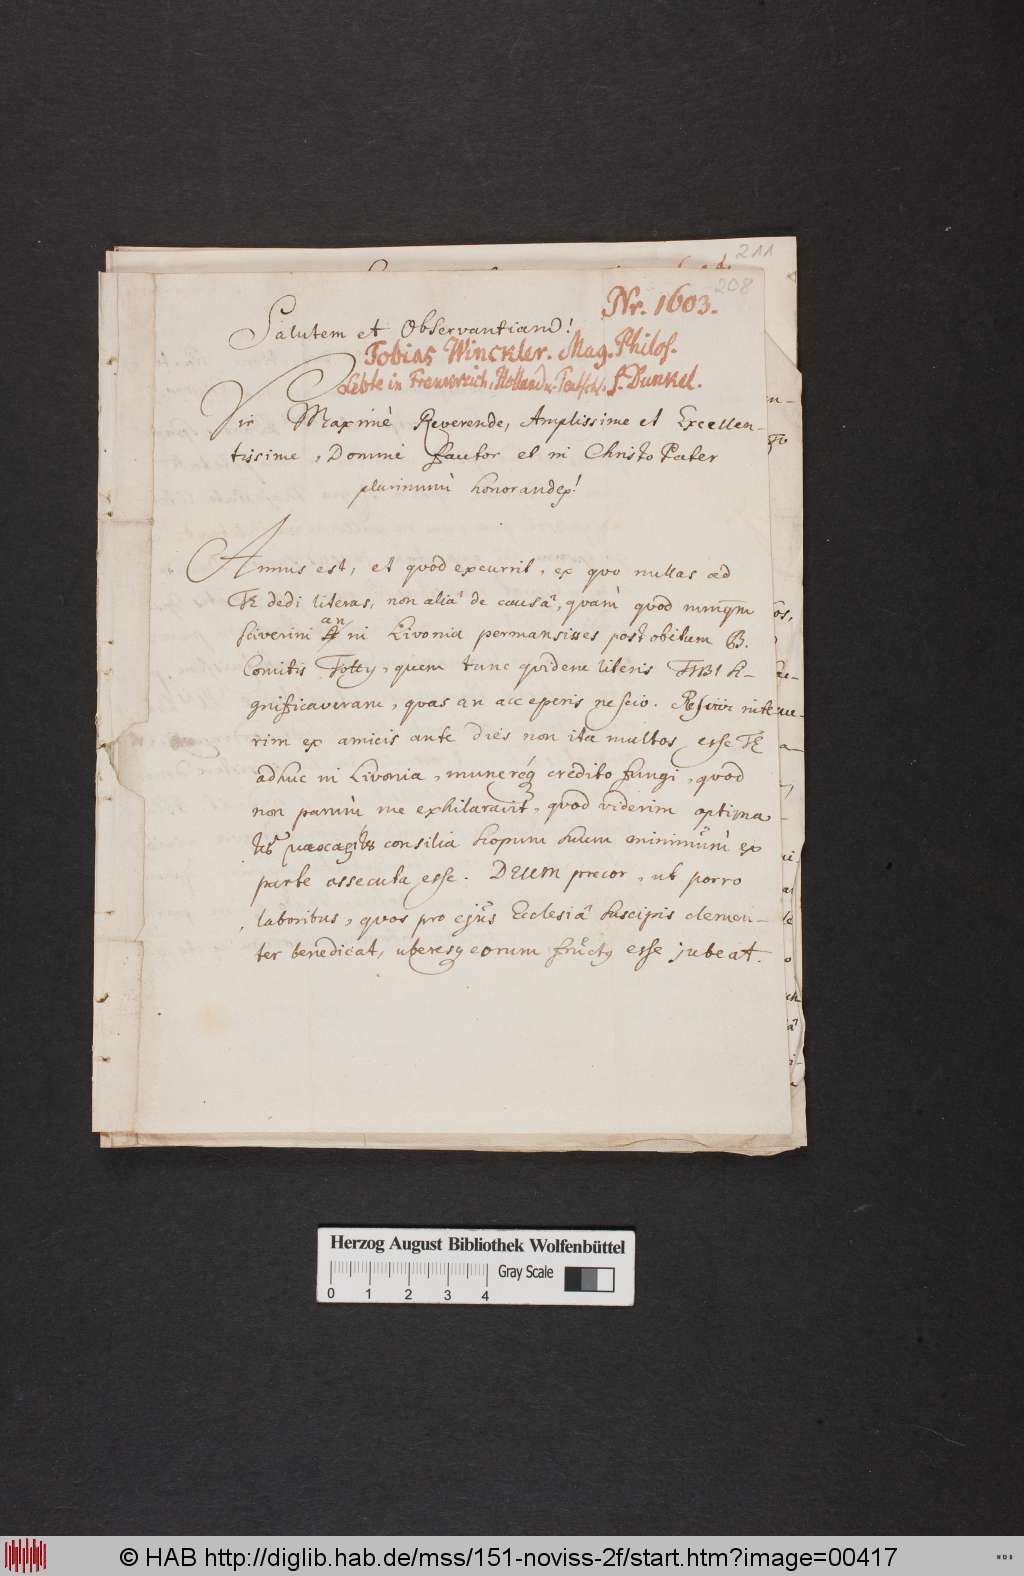 211
208
Nr. 1603.
Salutem et Observantiam!
Tobias Winckler. Mag. Philos.
Lebte in Franckreich, Holland u. Teutschl. s. Dunkel.
Vir Maximè Reverende, Amplissime et Excellen-
tissime, Domine Fautor et in Christo Pater
plurimùm honorande!
Annus est, et quod excurrit, ex quo nullas ad
TE dedi literas, non aliâ de causâ, quàm quod
sciverim an in Livonia permansisses post obitum B.
Comitis Totty, quem tunc quidem literis TIBI si-
gnificaveram, quas an acceperis nescio. Rescivi inte-
rim ex amicis ante dies non ita multos esse TE
adhuc in Livonia, munereq credito fungi, quod
non parùm me exhilaravit, quod viderim optima
consilia scopum suum minimùm ex
parte assecuta esse. DEUM precor, ut porro
laboribus, quos pro ejus Ecclesiâ suscipis clemen-
ter benedicat, uberesq eorum fructus esse jubeat.
Herzog August Bibliothek Wolfenbüttel
Gray Scale
0 1 2 3 4
© HAB http://diglib.hab.de/mss/151-noviss-2f/start.htm?image=00417